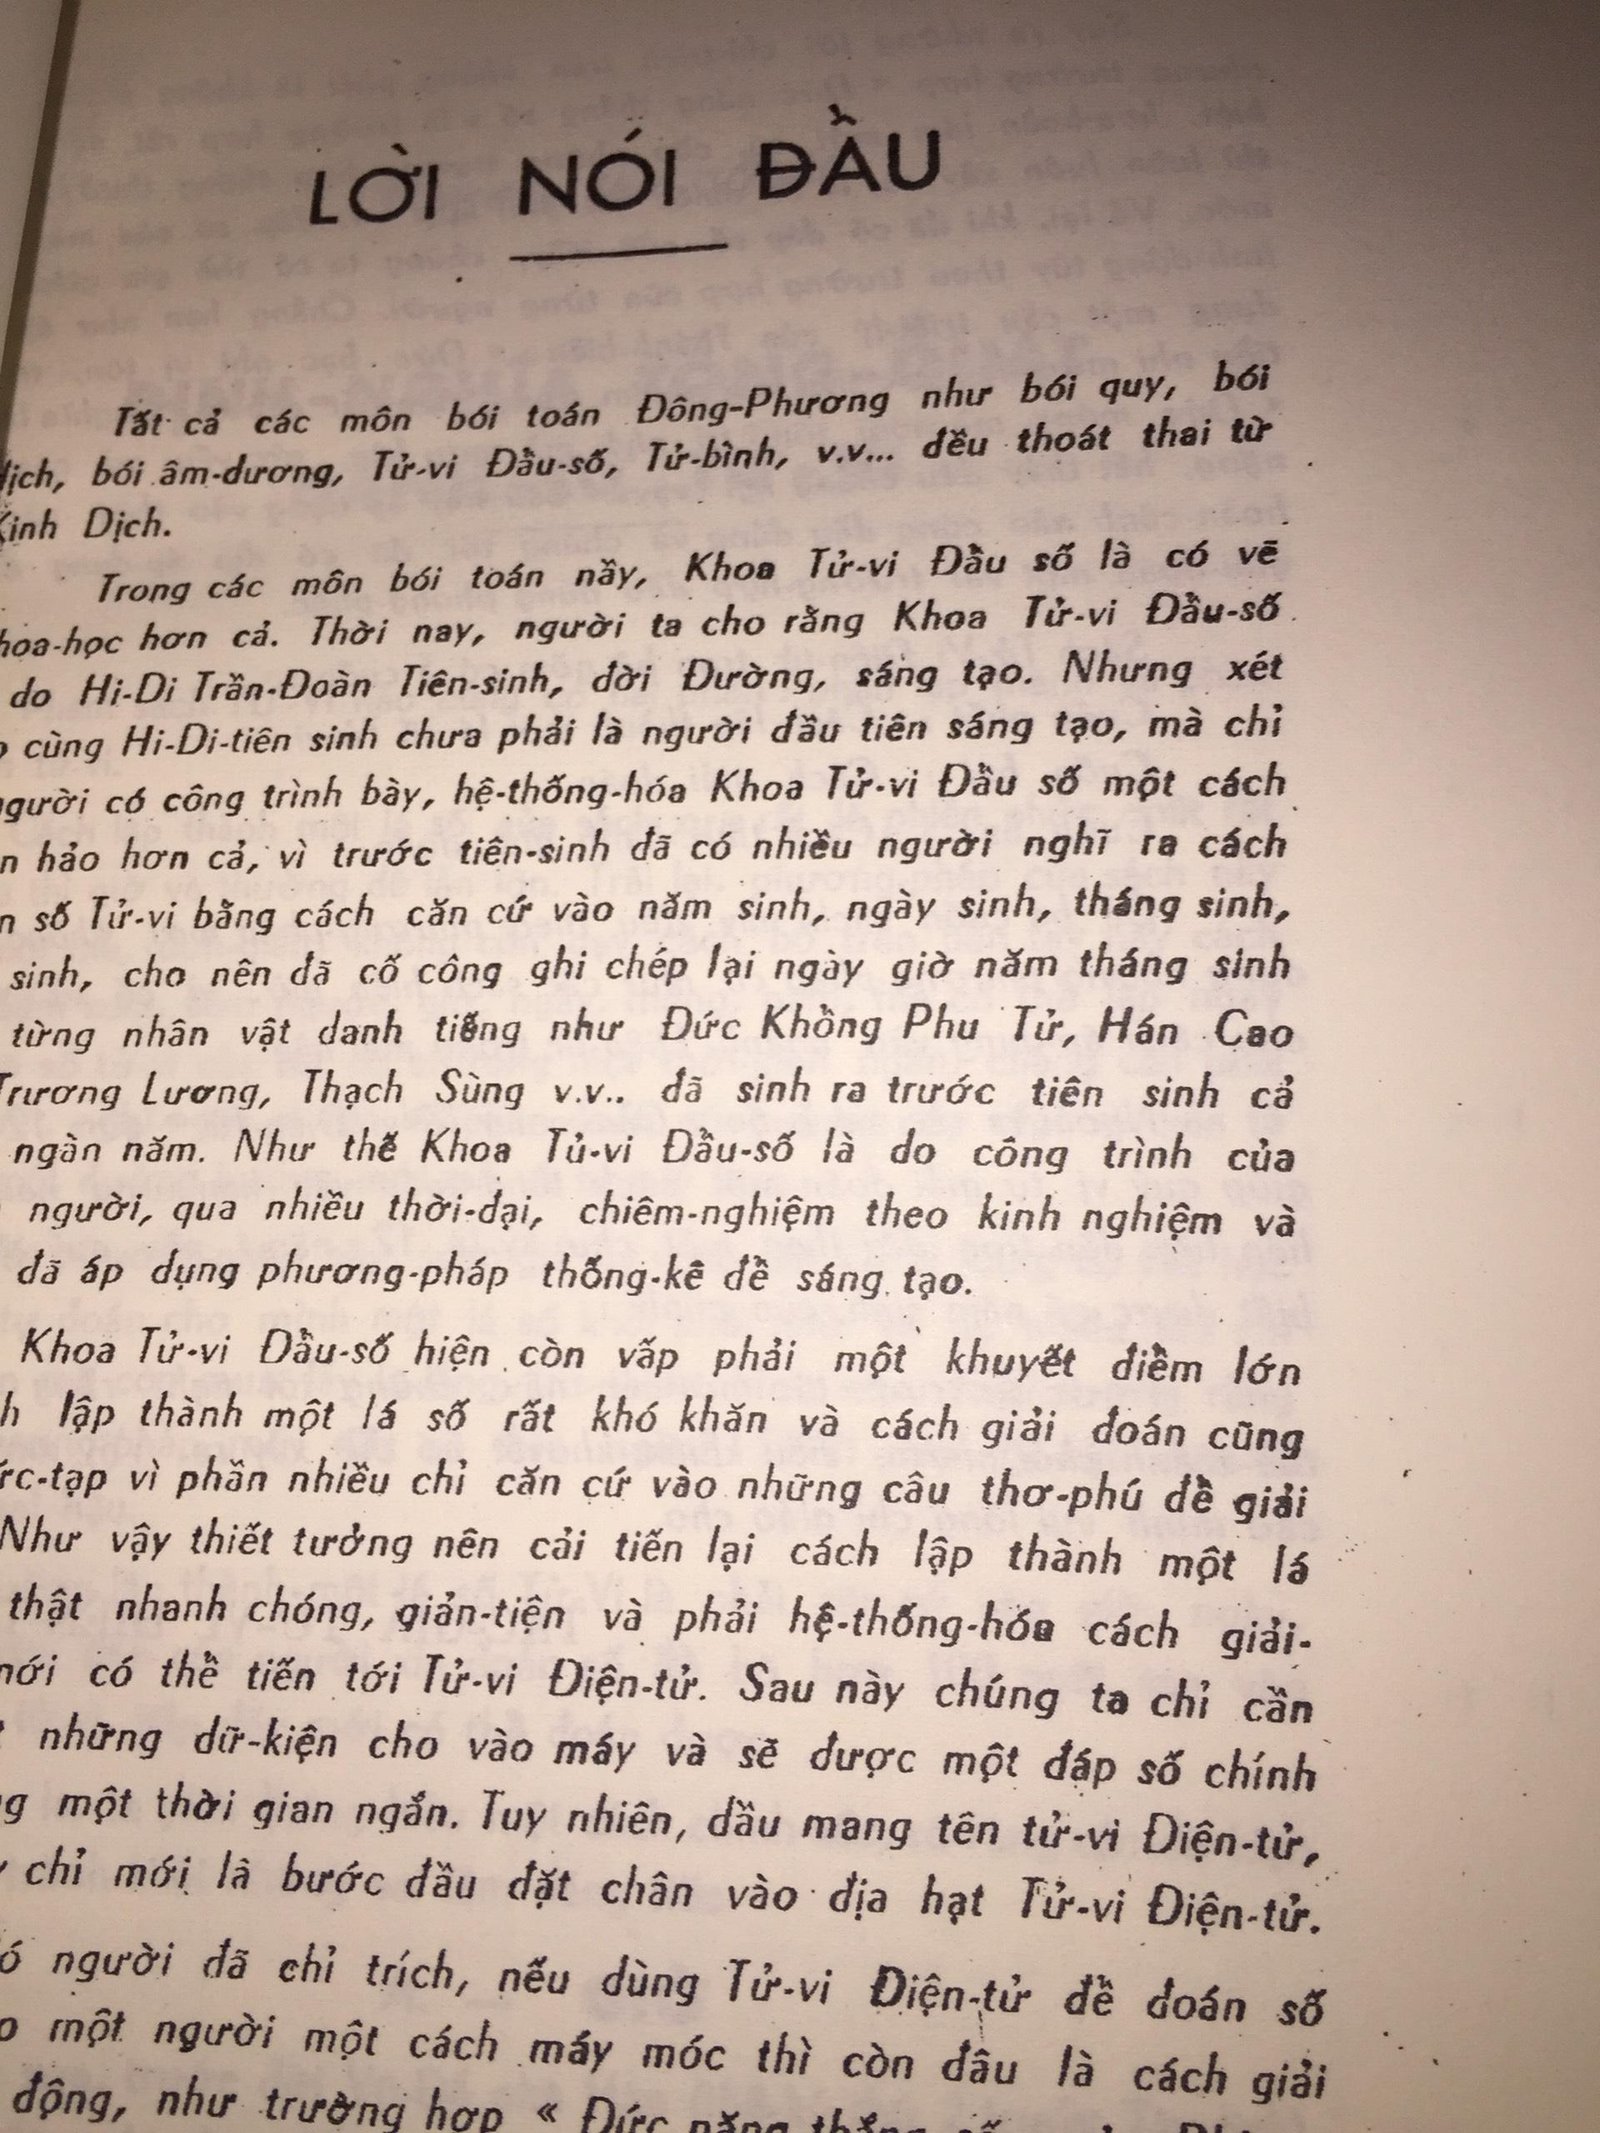 LỜI NÓI ĐẦU
Tất cả các môn bói toán Đông-Phương như bói quy, bói
dịch, bói âm-dương, Tử-vi Đầu-số, Tử-bình, v.v... đều thoát thai từ
Kinh Dịch.
Trong các môn bói toán nầy, Khoa Tử-vi Đầu số là có vẽ
hoa-học hơn cả. Thời nay, người ta cho rằng Khoa Tử-vi Đầu-số
do Hi-Di Trần-Đoàn Tiên-sinh, đời Đường, sáng tạo. Nhưng xét
cùng Hi-Di-tiên sinh chưa phải là người đầu tiên sáng tạo, mà chỉ
người có công trình bày, hệ-thống-hóa Khoa Tử-vi Đầu số một cách
n hảo hơn cả, vì trước tiên-sinh đã có nhiều người nghĩ ra cách
n số Tử-vi bằng cách căn cứ vào năm sinh, ngày sinh, tháng sinh,
sinh, cho nên đã cố công ghi chép lại ngày giờ năm tháng sinh
từng nhân vật danh tiếng như Đức Khổng Phu Tử, Hán Cao
Trương Lương, Thạch Sùng v.v.. đã sinh ra trước tiên sinh cả
ngàn năm. Như thế Khoa Tủ-vi Đầu-số là do công trình của
người, qua nhiều thời-đại, chiêm-nghiệm theo kinh nghiệm và
đã áp dụng phương-pháp thống-kê để sáng tạo.
Khoa Tử-vi Đầu-số hiện còn vấp phải một khuyết điểm lớn
h lập thành một lá số rất khó khăn và cách giải đoán cũng
ức-tạp vì phần nhiều chỉ căn cứ vào những câu thơ-phú để giải
Như vậy thiết tưởng nên cải tiến lại cách lập thành một lá
thật nhanh chóng, giản-tiện và phải hệ-thống-hóa cách giải-
mới có thể tiến tới Tử-vi Điện-tử. Sau này chúng ta chỉ cần
t những dữ-kiện cho vào máy và sẽ được một đáp số chính
ng một thời gian ngắn. Tuy nhiên, dầu mang tên tử-vi Điện-tử,
y chỉ mới là bước đầu đặt chân vào địa hạt Tử-vi Điện-tử.
ó người đã chỉ trích, nếu dùng Tử-vi Điện-tử để đoán số
o một người một cách máy móc thì còn đâu là cách giải
động, như trường hợp « Đức năng thắng số